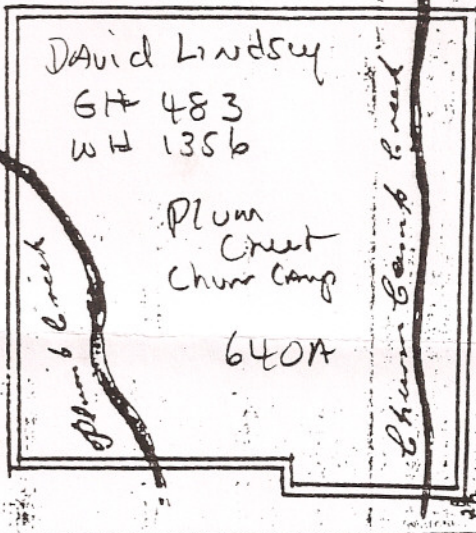 David Lindsey
GH 483
WH 1356
Plum
Creek
Chum Camp
640A
Plumb Creek
Chum Camp Creek